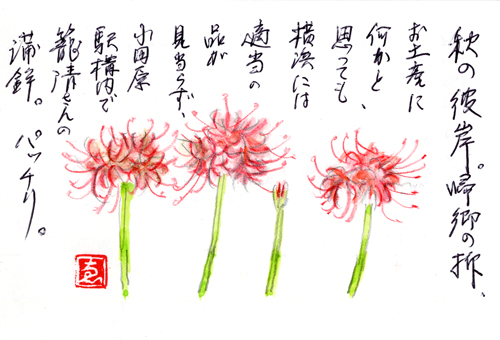 秋の彼岸。帰郷の折、
お土産に
何かと、
思っても
横浜には
適当の
品が
見当らず、
小田原
駅構内で
籠清さんの
蒲鉾。パッチリ。
ゑ